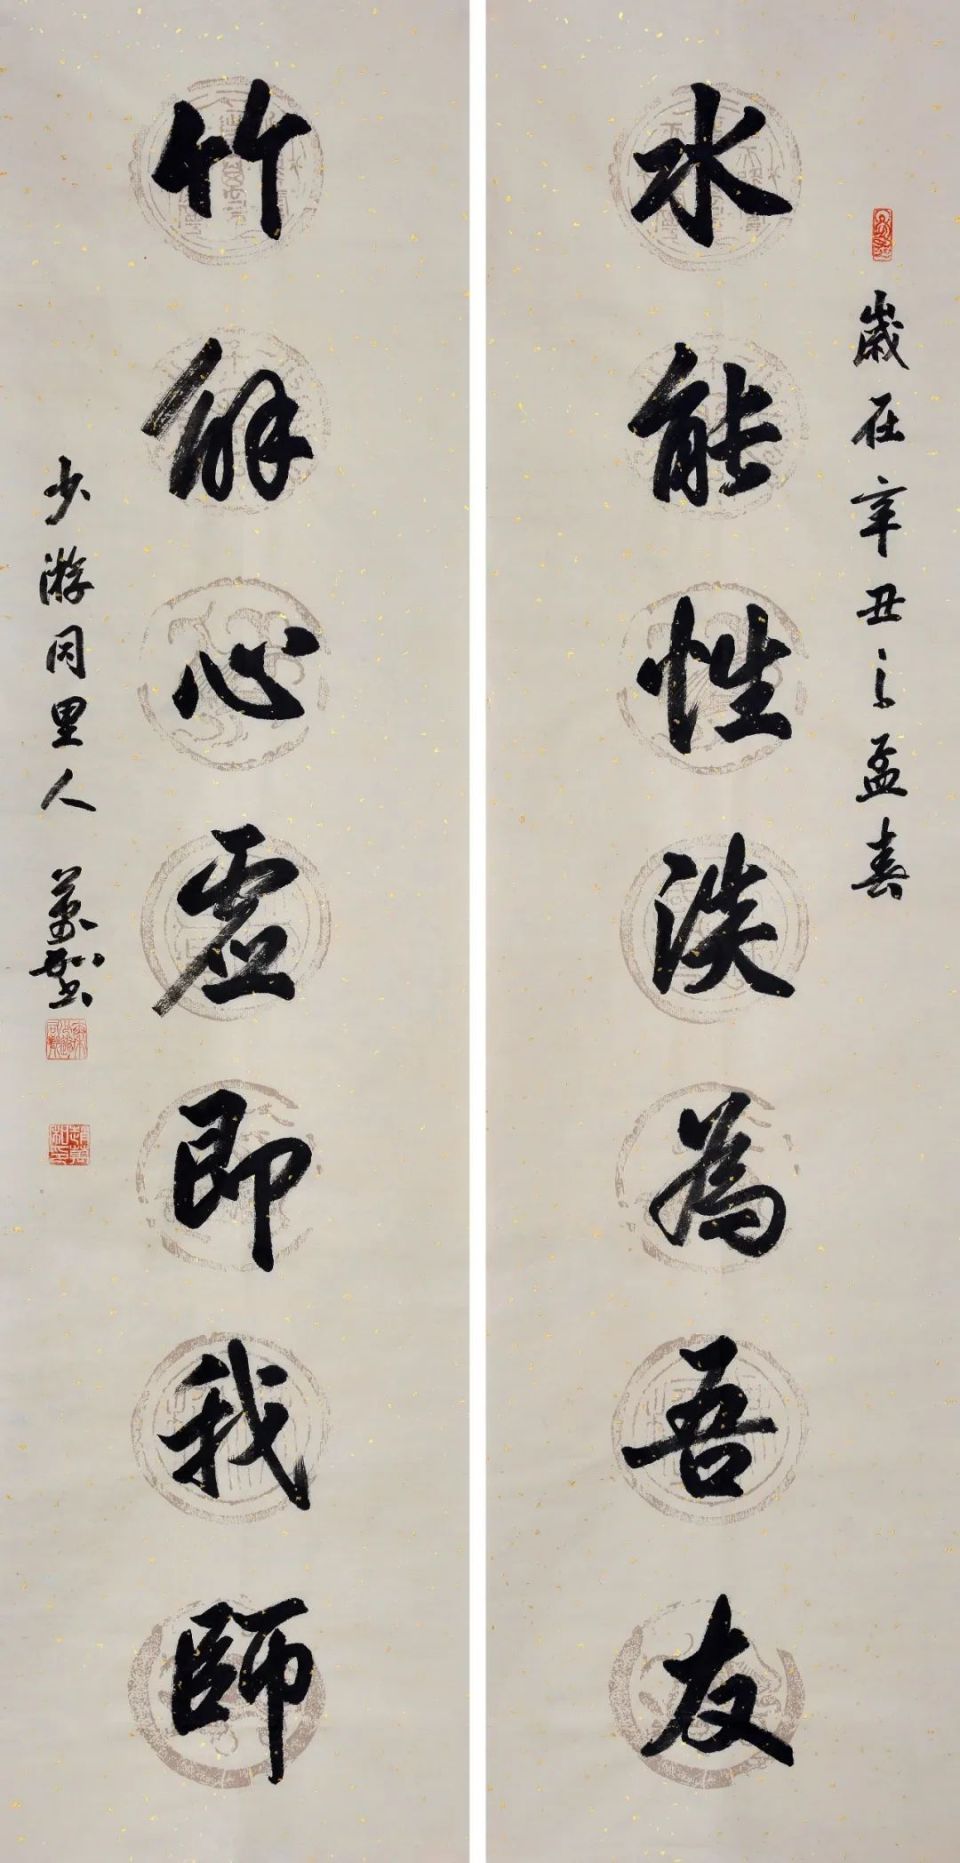 歲在辛丑之孟春
水能性淡為吾友
竹解心虛即我師
少游同里人